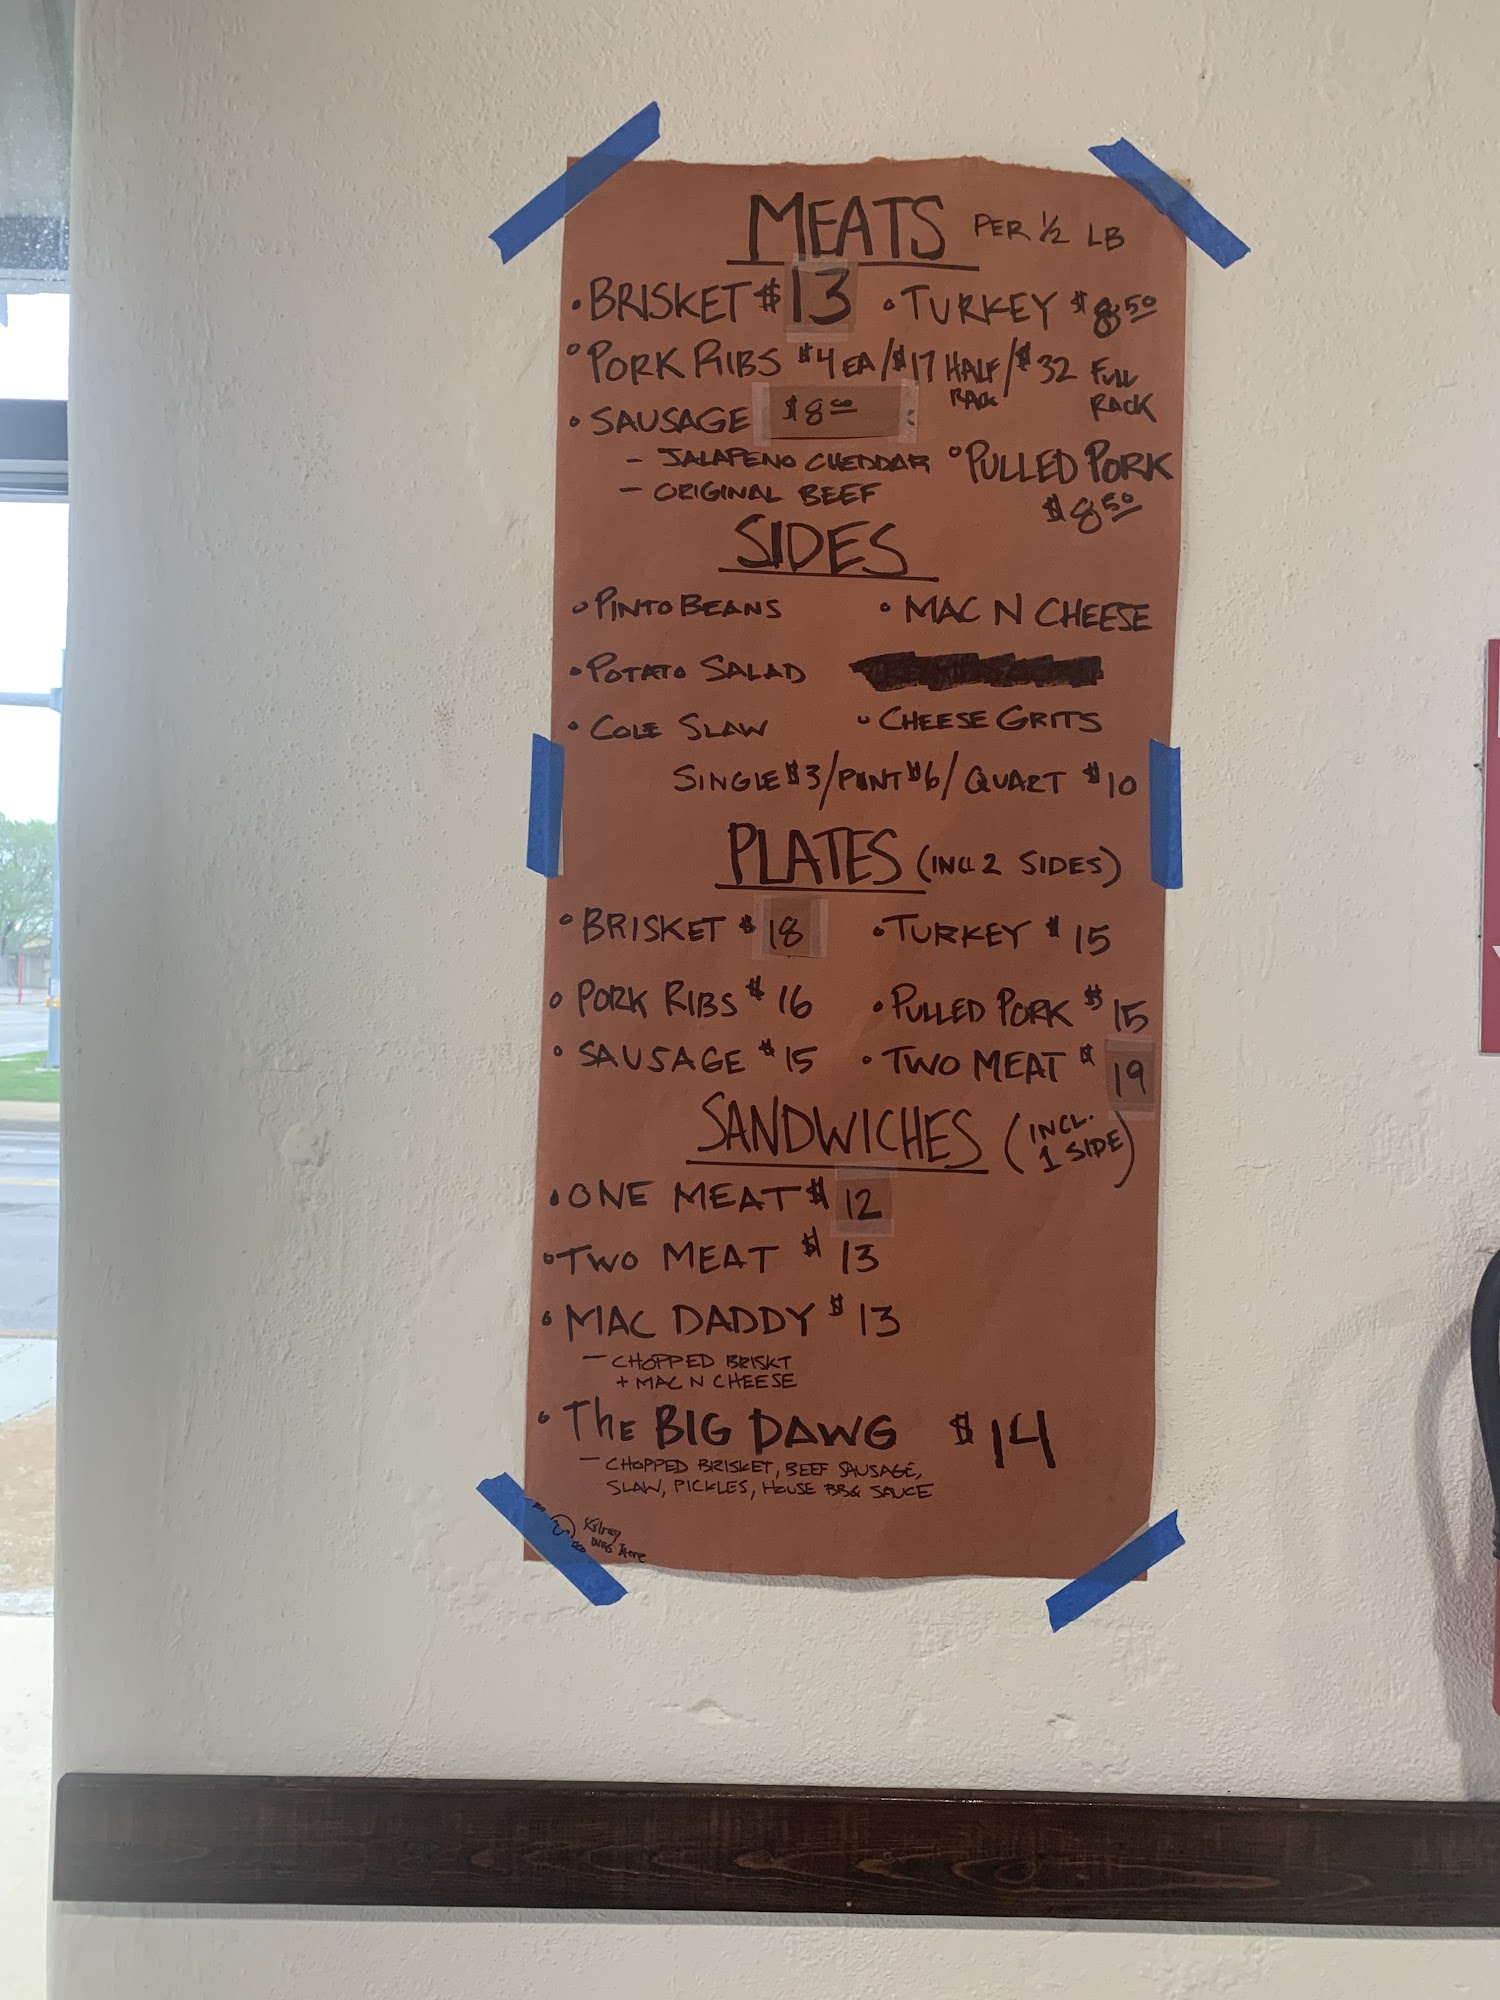 MEATS PER ½ LB
• BRISKET $13 • TURKEY $8.50
• PORK RIBS $4 EA/$17 HALF RACK/$32 FULL RACK
• SAUSAGE $8.00
- JALAPENO CHEDDAR • PULLED PORK
- ORIGINAL BEEF $8.50
SIDES
• PINTO BEANS • MAC N CHEESE
• POTATO SALAD
• COLE SLAW • CHEESE GRITS
SINGLE $3/PINT $6/QUART $10
PLATES (INCL 2 SIDES)
• BRISKET $18 • TURKEY $15
• PORK RIBS $16 • PULLED PORK $15
• SAUSAGE $15 • TWO MEAT $19
SANDWICHES (INCL. 1 SIDE)
• ONE MEAT $12
• TWO MEAT $13
• MAC DADDY $13
- CHOPPED BRISKT
+ MAC N CHEESE
• The BIG DAWG $14
- CHOPPED BRISKET, BEEF SAUSAGE,
SLAW, PICKLES, HOUSE BBQ SAUCE
was Here